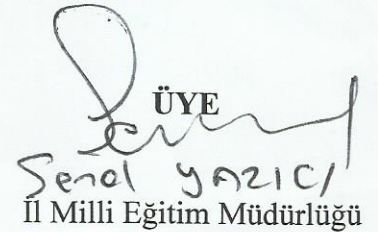 ÜYE
Senol YAZICI
İl Milli Eğitim Müdürlüğü